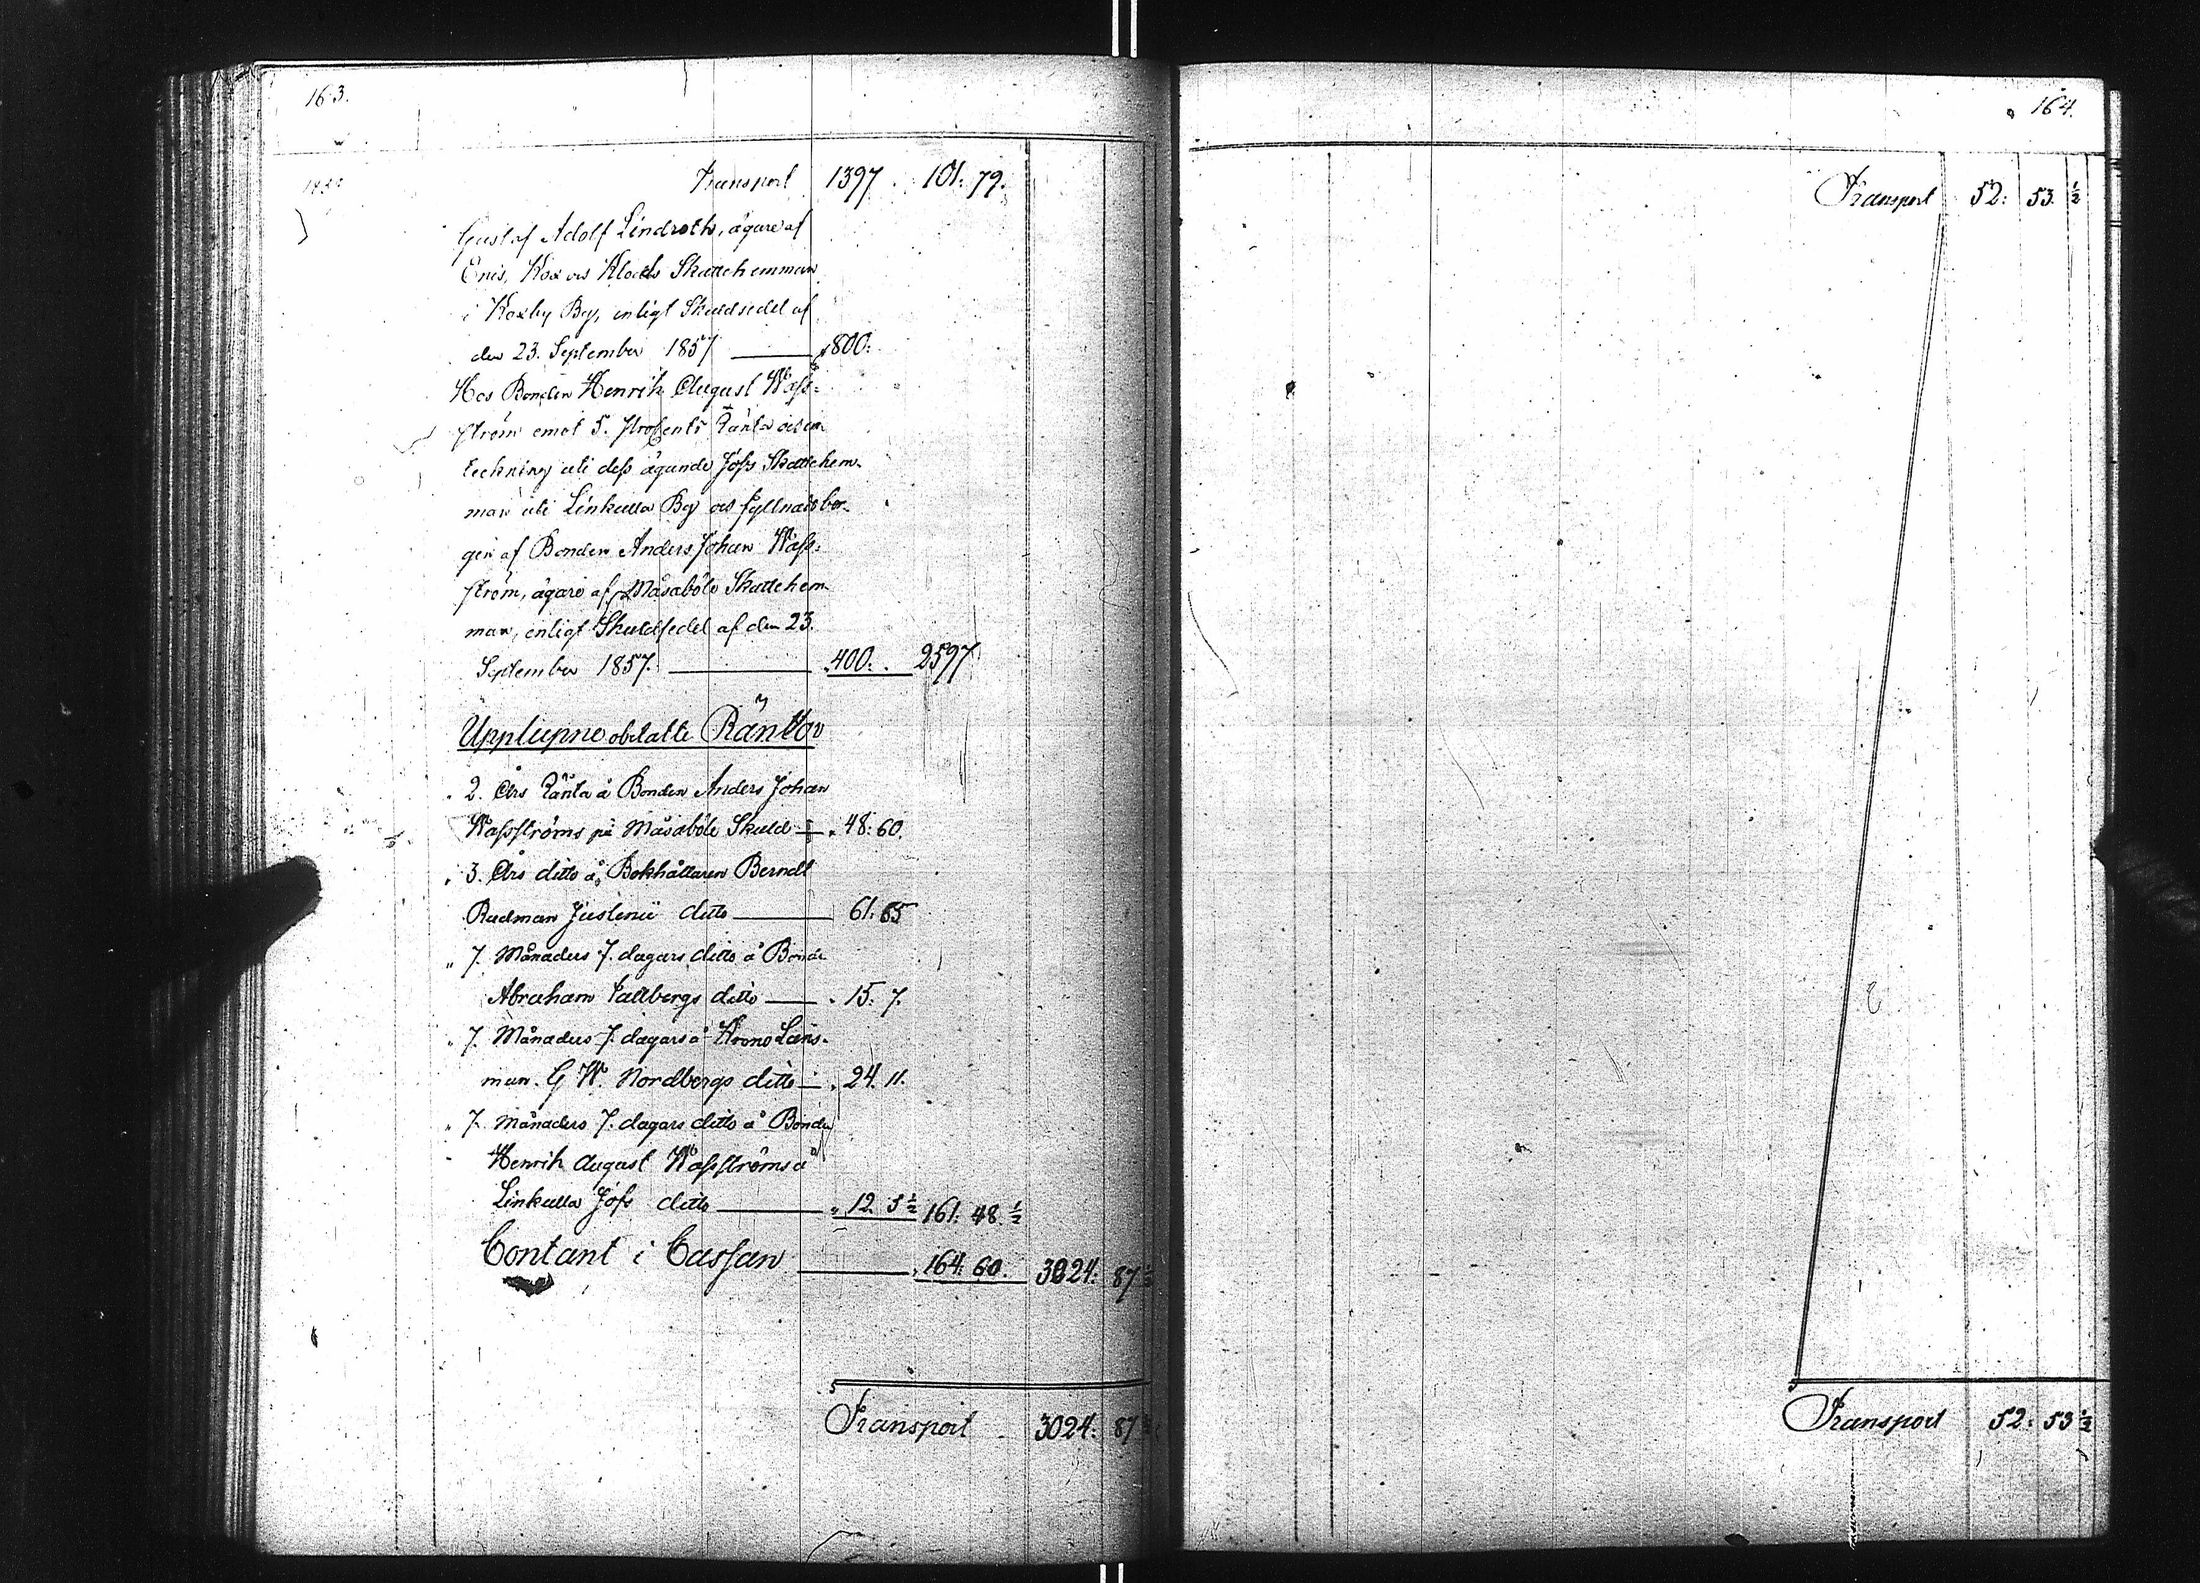 163.
Transport 1397 . 101: 79.
Gustaf Adolf Lindroth, ägare af
Eris, Kox och Klocks Skattehemman
i Koxby By, enligt Skuldsedel af
den 23. September 1857 — 800:
Hos Bonden Henrik August Wass-
ström emot 5. Procents Ränta och in
teckning uti dess ägande Jofs Skattehem-
man uti Linkulla By och fyllnads bor-
gen af Bonden Anders Johan Wass-
ström, ägare af Måsaböle Skattehem
man, enligt Skuldsedel af den 23.
September 1857. — 400: . 2597
Upplupne obetalte Räntor
" 2. Års Ränta å Bonden Anders Johan
Wassströms på Måsaböle Skuld — " 48: 60.
" 3. Års ditto å Bokhållaren Berndt
Rudman Justenii ditto — 61: 65
" 7. Månaders 7. dagars ditto å Bonde
Abraham Fallbergs ditto — " 15: 7.
" 7. Månaders 7. dagars å Krono Läns-
man G W. Nordbergs ditto — " 24. 11.
" 7. Månaders 7. dagars ditto å Bonde
Henrik August Wassströms å
Linkulla Jofs ditto — " 12. 5 ½ 161: 48. ½
Contant i Cassan — " 164: 60. 3024: 87 ½
Transport 3024: 87 ½
164.
Transport 52: 53. ½
Transport 52: 53 ½